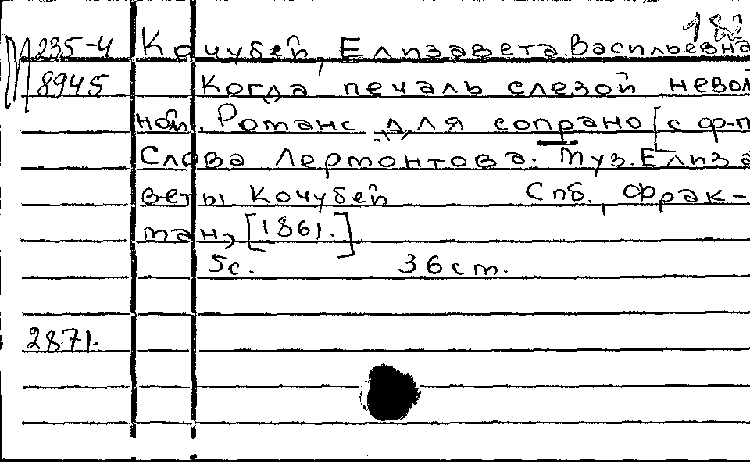 182
235-4 Кочубей, Елизавета Васильевна
8945 Когда печаль слезой невол
ной. Романс для сопрано [с ф-п
Слова Лермонтова. Муз. Елиза
веты Кочубей Спб., Фрак-
ман, [1861.]
5с. 36 ст.
2871.